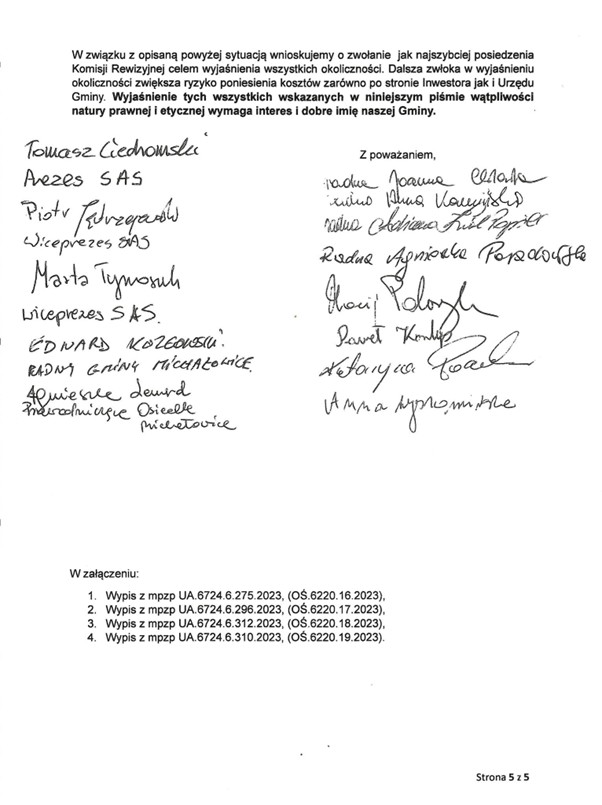 W związku z opisaną powyżej sytuacją wnioskujemy o zwołanie jak najszybciej posiedzenia
Komisji Rewizyjnej celem wyjaśnienia wszystkich okoliczności. Dalsza zwłoka w wyjaśnieniu
okoliczności zwiększa ryzyko poniesienia kosztów zarówno po stronie Inwestora jak i Urzędu
Gminy. Wyjaśnienie tych wszystkich wskazanych w niniejszym piśmie wątpliwości
natury prawnej i etycznej wymaga interes i dobre imię naszej Gminy.
Tomasz
Prezes SAS
Piotr
Wiceprezes SAS
Marta Tymosuk
Wiceprezes SAS.
EDWARD KOZŁOWSKI
RADNY GMINY MICHAŁOWICE
Agnieszka
Przewodnicząca Osiedla
Michałowice
Z poważaniem,
radna Joanna
radna Anna Kamińska
radna Adriana Król
Radna Agnieszka
Maciej
Paweł
Katarzyna
Anna
W załączeniu:
1. Wypis z mpzp UA.6724.6.275.2023, (OŚ.6220.16.2023),
2. Wypis z mpzp UA.6724.6.296.2023, (OŚ.6220.17.2023),
3. Wypis z mpzp UA.6724.6.312.2023, (OŚ.6220.18.2023),
4. Wypis z mpzp UA.6724.6.310.2023, (OŚ.6220.19.2023).
Strona 5 z 5